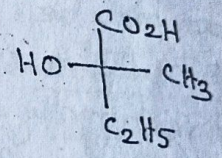 CO2H
HO
CH3
C2H5